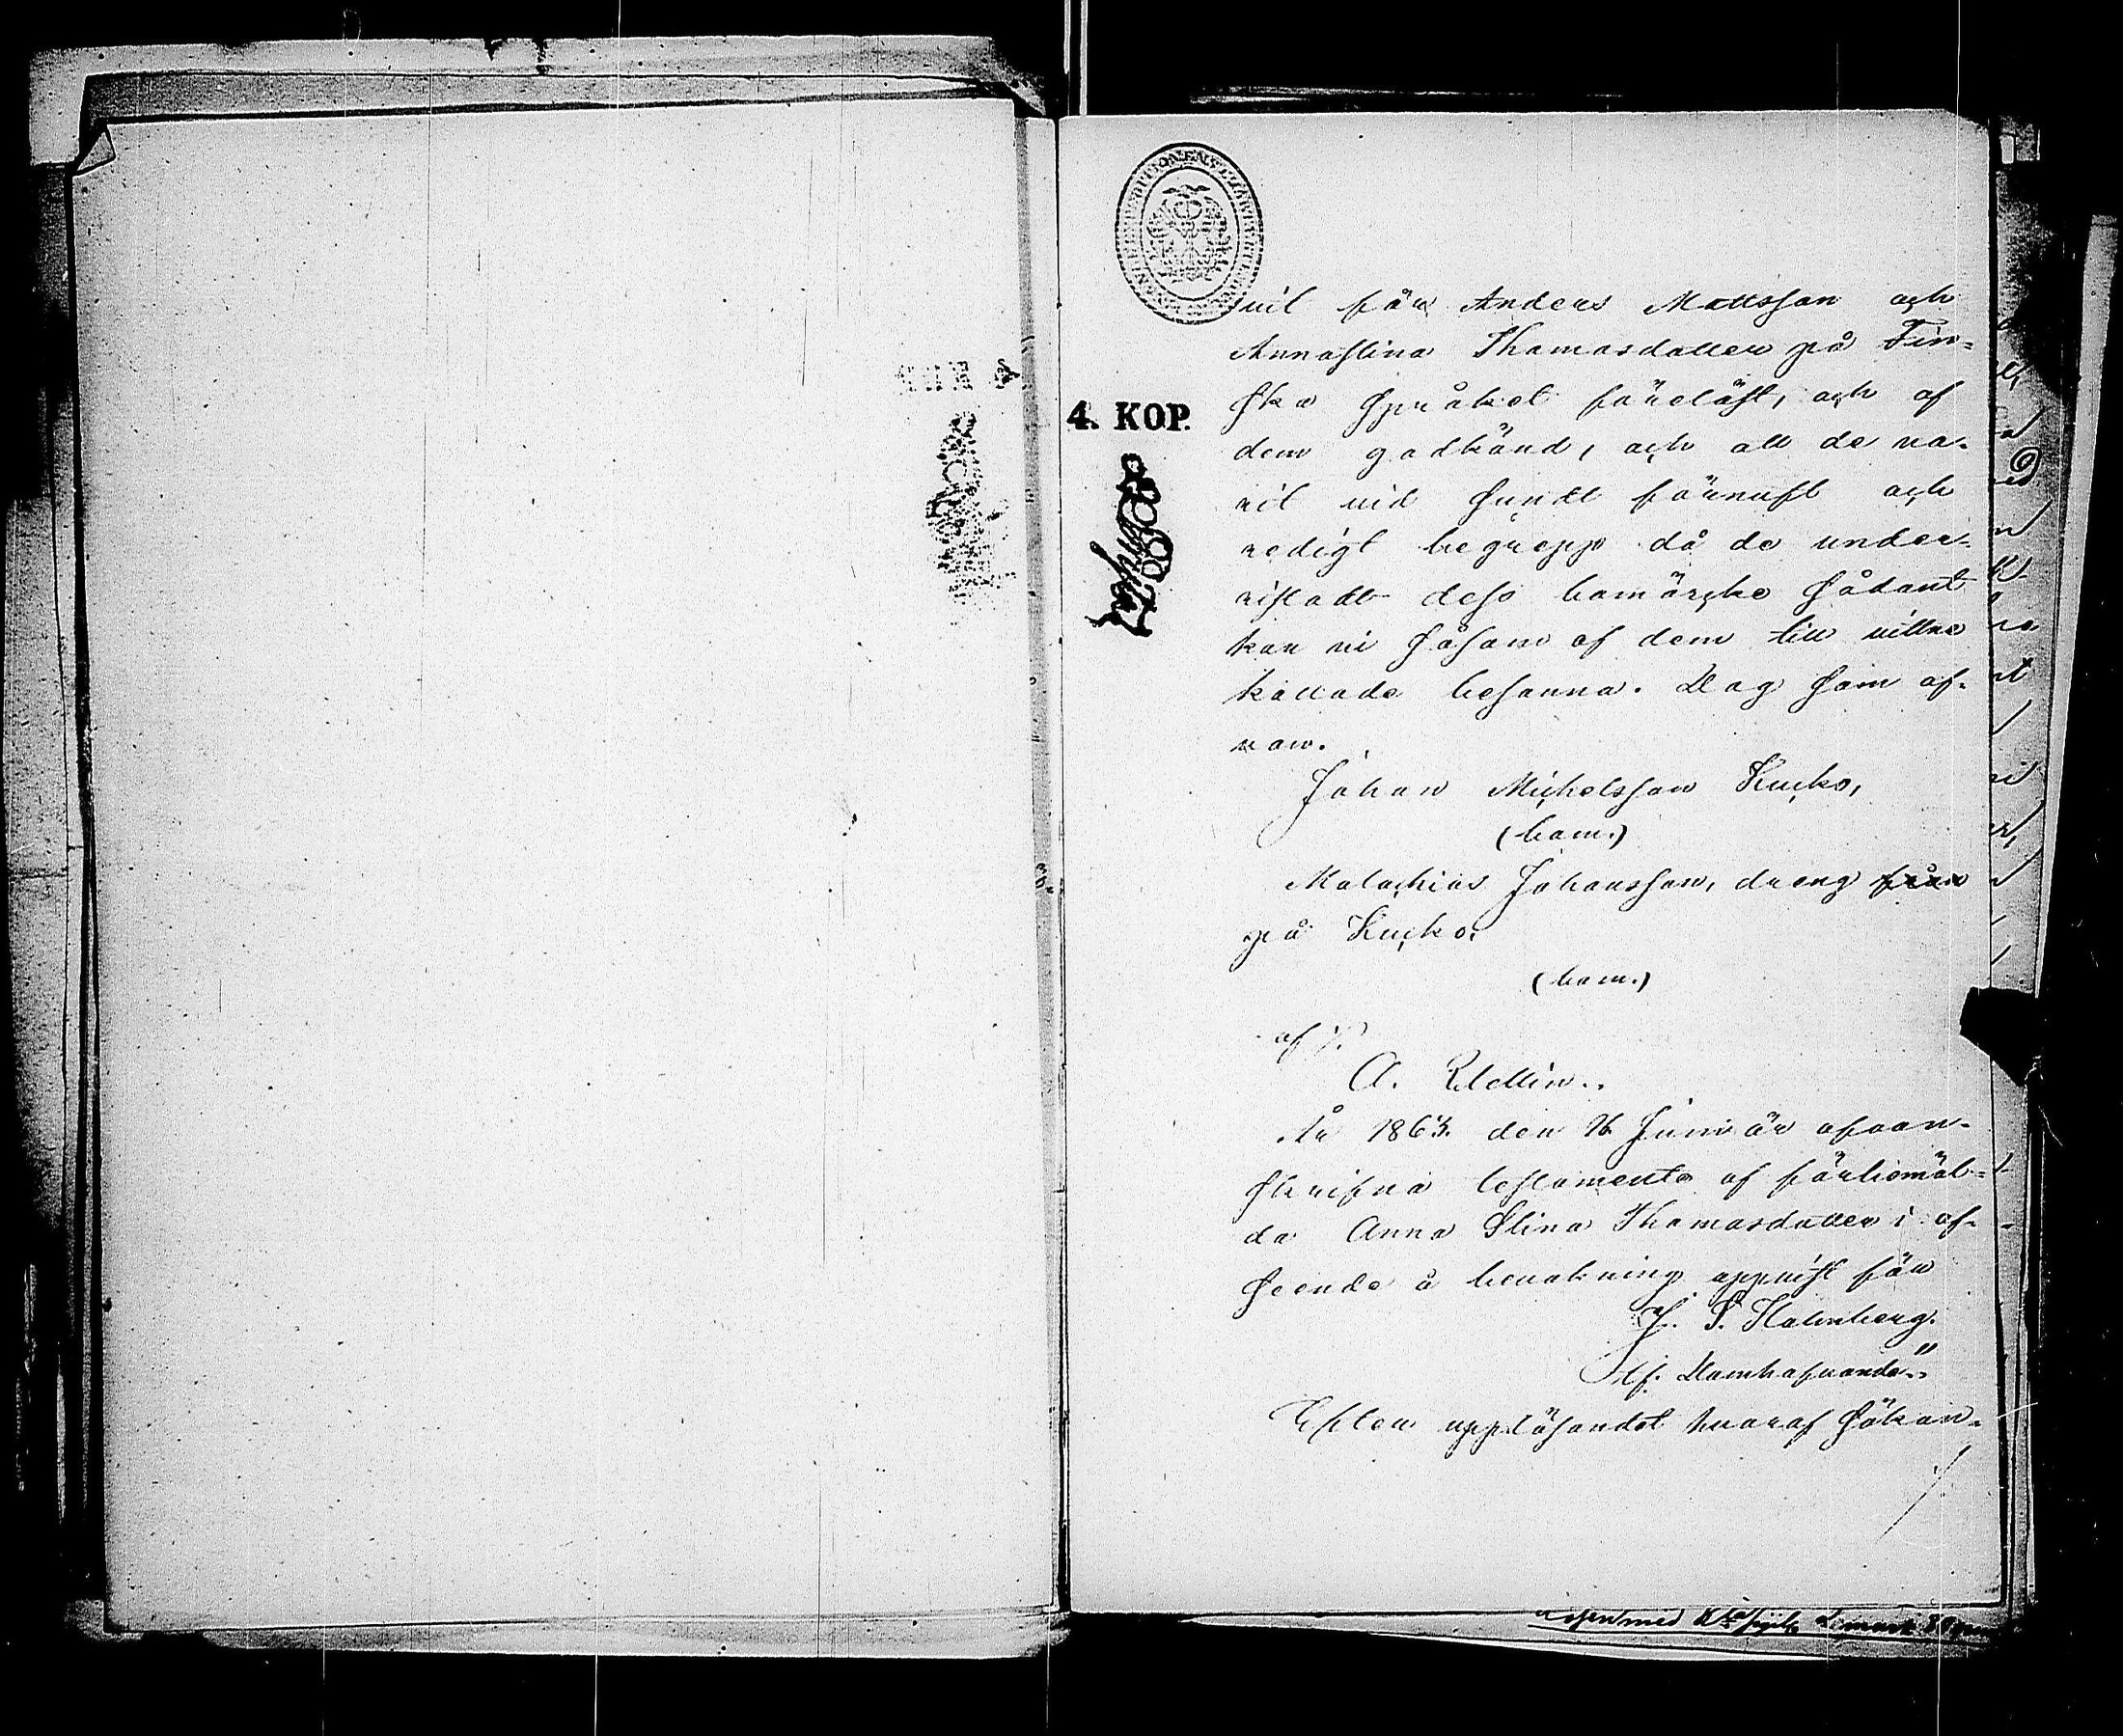 4. KOP.
vit för Anders Mattsson och
Annastina Thomasdotter på Fin-
ska språket föreläst, och af
dem godkänd, och att de va-
rit vid sundt förnuft och
redigt begrepp då de under-
ristadt dess bomärcke sådant
kan vi såsom af dem till vittne
kallade besanna. Dag som of-
van.
Johan Michelsson Kucko,
(bom.)
Malachias Johansson, dreng från
på Kucko,
(bom.)
A.
År 1863. den 16 Juni är ofvan-
skrifna testamente af förbemäl-
da Anna Stina Thomasdotter i af-
seende å bevakning uppvist för
J. S. Holmberg.
tf. Domhafvande."
Efter uppläsandet hvaraf sökan-